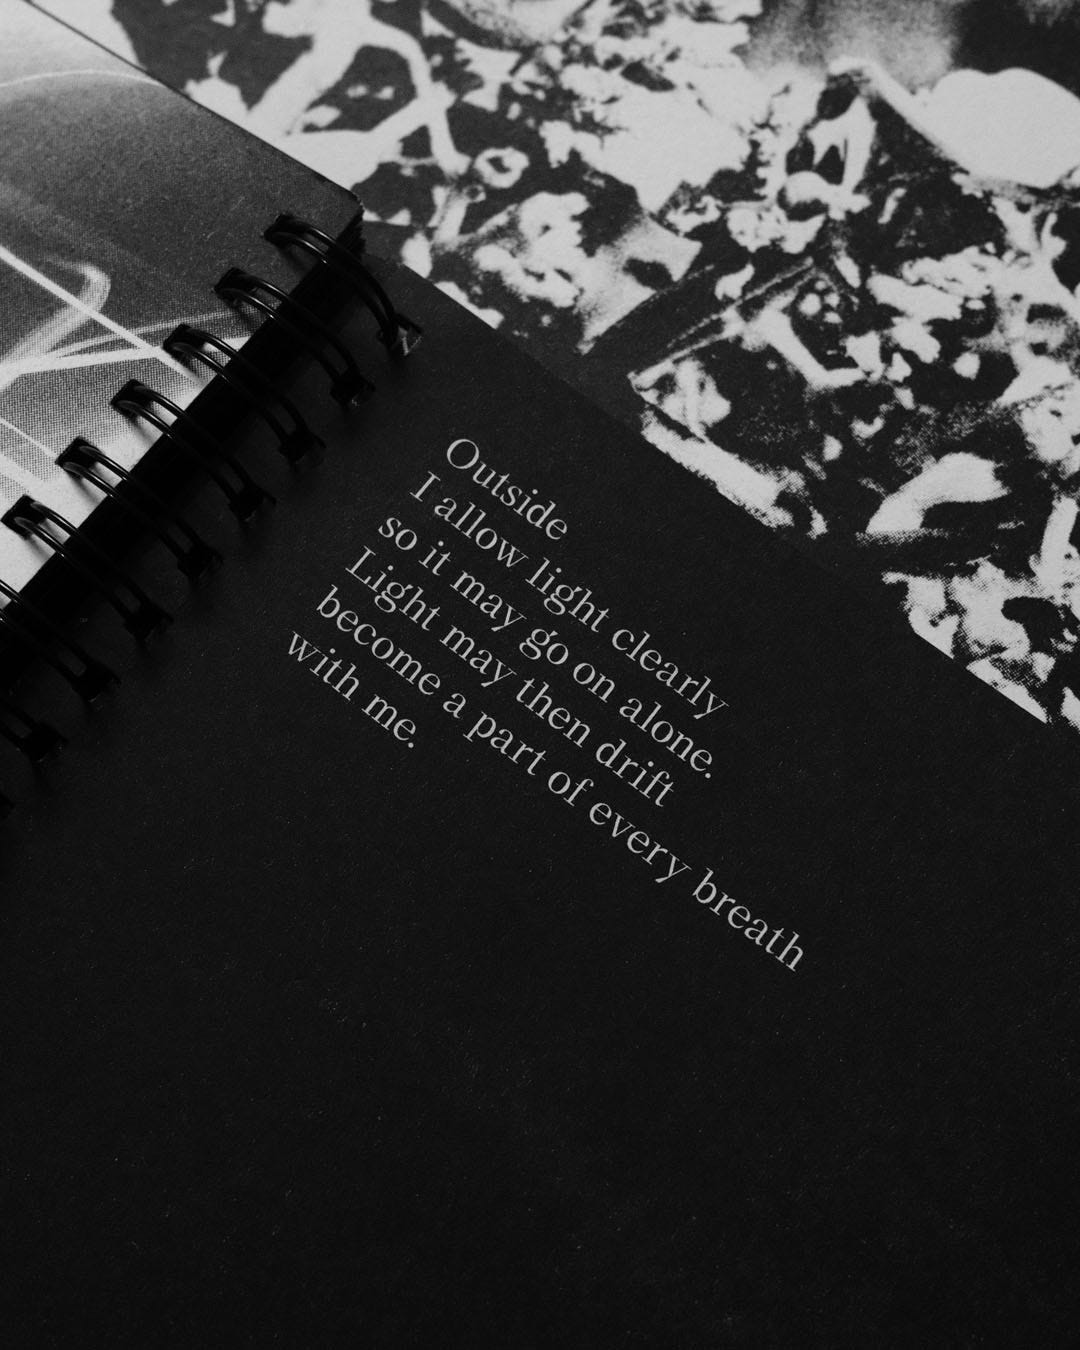 Outside
I allow light clearly
so it may go on alone.
Light may then drift
become a part of every breath
with me.